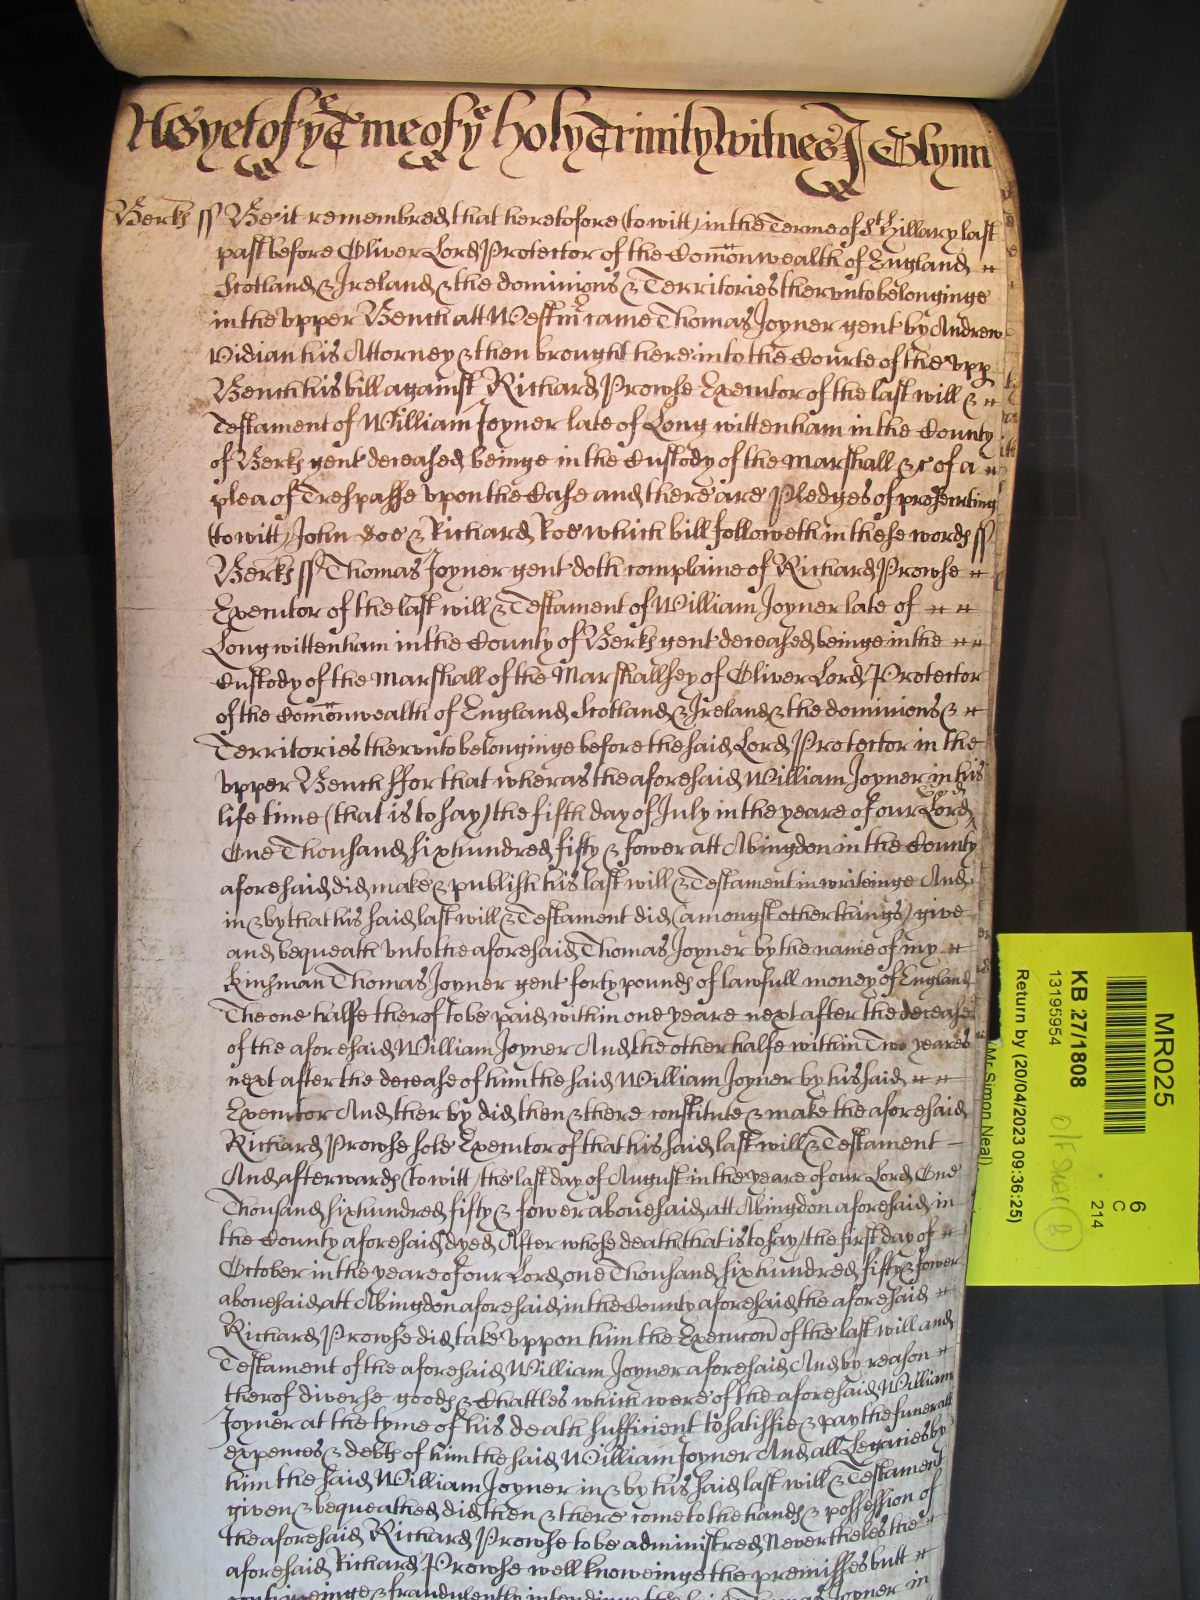 As yet of ye Tme of ye holy Trinity Witnes J Glynn
Berks ss Be it remembred that heretofore (to witt) in the Terme of St Hillary last
past before Oliver Lord Protector of the Comonwealth of England
Scotland & Ireland & the dominions & Territories therunto belonginge
in the upper Bench att Westmr came Thomas Joyner gent by Andrew
Vidian his Attorney & then brought here into the Courte of the upp
Bench his bill against Richard Prowse Executor of the last will &
Testament of William Joyner late of Long wittenham in the County
of Berks gent deceased beinge in the Custody of the Marshall &c of a
plea of Trespasse upon the Case and there are Pledges of prosecuting
(to witt) John Doe & Richard Roe which bill followeth in these words ss
Berks ss Thomas Joyner gent doth complaine of Richard Prowse
Executor of the last will & Testament of William Joyner late of
Long wittenham in the County of Berks gent deceased beinge in the
Custody of the Marshall of the Marshallsey of Oliver Lord Protector
of the Comonwealth of England Scotland & Ireland & the dominions &
Territories therunto belonginge before the said Lord Protector in the
upper Bench ffor that wheras the aforesaid William Joyner in his
life time (that is to say) the fifth day of July in the yeare of our Lord
One Thousand six hundred fifty & fower att Abingdon in the County
aforesaid did make & publish his last will & Testament in writeinge And
in & by that his said last will & Testament did (amongst other things) give
and bequeath unto the aforesaid Thomas Joyner by the name of my
kinsman Thomas Joyner gent forty pounds of lawfull money of England
The one halfe therof to be paid within one yeare next after the decease
of the aforesaid William Joyner And the other halfe within Two yeares
next after the decease of him the said William Joyner by his said
Executor And therby did then & there constitute & make the aforesaid
Richard Prowse sole Executor of that his said last will & Testament
And afterwards (to witt) the last day of August in the yeare of our Lord One
Thousand six hundred fifty & fower abovesaid att Abingdon aforesaid in
the County aforesaid dyed After whose death that is to say) the first day of
October in the yeare of our Lord one Thousand six hundred fifty & fower
abovesaid att Abingdon aforesaid in the County aforesaid the aforesaid
Richard Prowse did take uppon him the Execucon of the last will and
Testament of the aforesaid William Joyner aforesaid And by reason
therof diverse goods & Chattles which were of the aforesaid William
Joyner at the tyme of his death sufficient to satisfie & pay the funerall
expences & debts of him the said William Joyner And all Legacies by
him the said William Joyner in & by his said last will & Testament
given & bequeathed did then & there come to the hands & possession of
the aforesaid Richard Prowse to be administred Nevertheles the
aforesaid Richard Prowse well knoweinge the premisses butt
contriveinge & fraudulently intendinge the said Thomas Joyner in
MR025
6
C
214
KB 27/1808
13195954
Return by (20/04/2023 09:36:25)
(Mr Simon Neal)